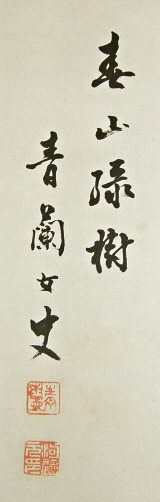 春山緑樹
青蘭女史